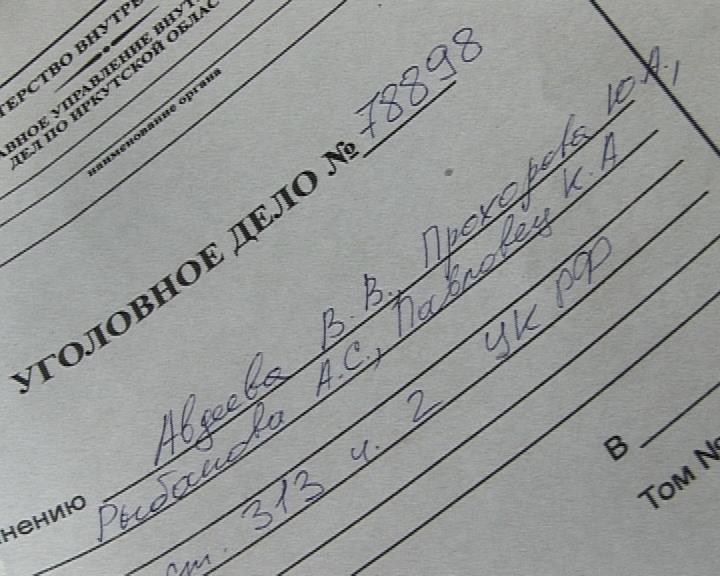 ТЕРСТВО ВНУТРЕ
АВНОЕ УПРАВЛЕНИЕ ВНУТ
ДЕЛ ПО ИРКУТСКОЙ ОБЛАС
наименование органа
УГОЛОВНОЕ ДЕЛО № 78898
Авдеева В.В., Прохорова Ю.А.,
нению Рыбакова А.С., Павловец К.А
ст. 313 ч. 2 УК РФ
В
Том №